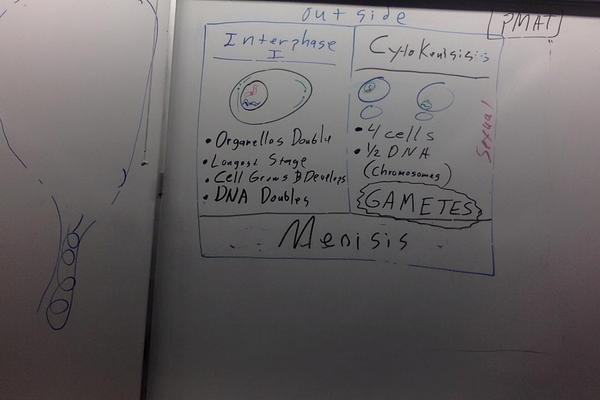 out side
PMAT
Interphase
I
• Organellos Double
• Longest Stage
• Cell Grows & Develops
• DNA Doubles
CytoKenisisis
• 4 cells
• 1/2 DNA
(Chromosomes)
GAMETES
Sexual
Menisis